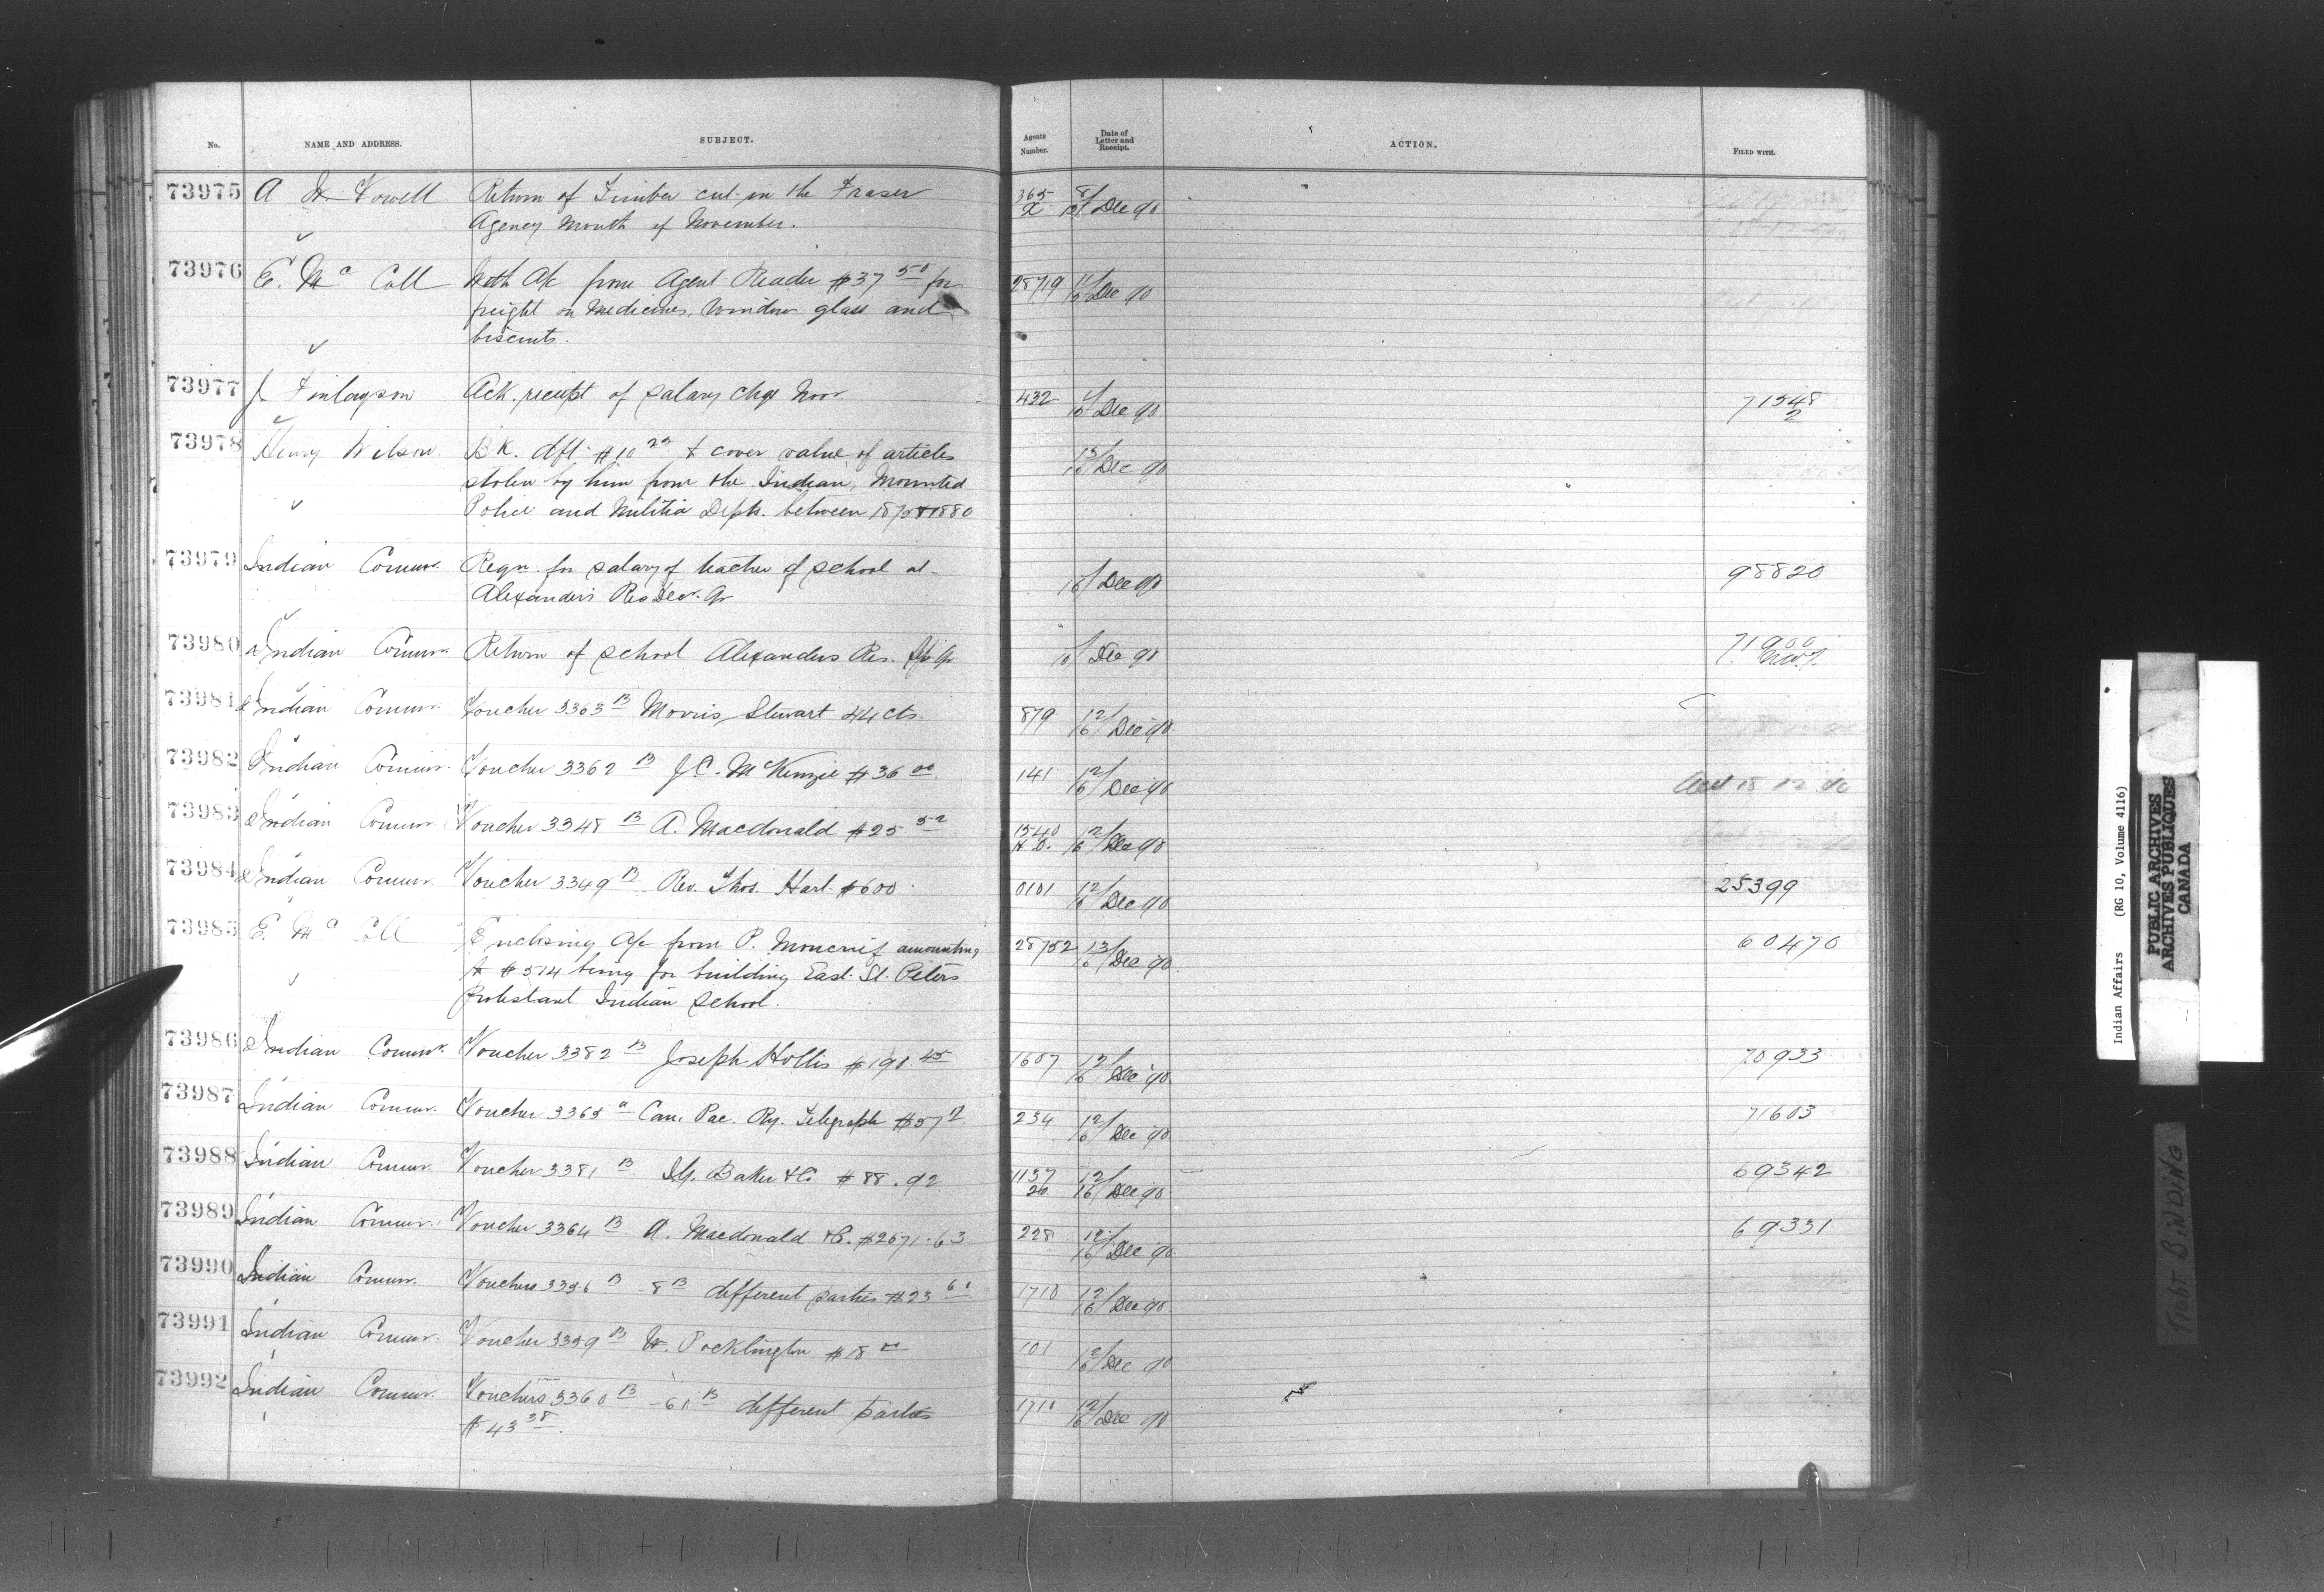 No. NAME AND ADDRESS. SUBJECT. Agents Number. Date of Letter and Receipt. ACTION. FILED WITH.
73975 A W Vowell Return of Timber cut in the Fraser 365 8/16 Dec 90
Agency Month of November.
73976 E. McColl With A/c from Agent Reader $37 50 for 28719 11/16 Dec 90
freight on Medicines, Window glass and
biscuits.
73977 J. Finlayson Ack. receipt of salary chqe Novr 432 /16 Dec 90 71548 2
73978 Henry Wilson BK. dft. $10 to cover value of articles 13/16 Dec 90
stolen by him from the Indian, Mounted
Police and Militia Depts. between 1875 & 1880
73979 Indian Commr. Reqn. for salary of teacher of school at 16/ Dec 90 98820
Alexander's Res Decr. Qr
73980 Indian Commr. Return of school Alexanders Res. Qr 16/ Dec 90 71900
73981 Indian Commr. Voucher 3363 B Morris Stewart 44 cts. 879 12/16 Dec 90
73982 Indian Commr. Voucher 3362 B J.C. McKenzie $36 00 141 12/16 Dec 90 18 12 90
73983 Indian Commr. Voucher 3348 B A. Macdonald $25 52 1540 12/16 Dec 90
73984 Indian Commr. Voucher 3349 B Rev. Thos. Hart $600 0101 12/16 Dec 90 25399
73985 E. McColl Enclosing A/c from P. Moncrief amounting 28752 13/16 Dec 90 60470
to $514 being for building East St. Peters
Protestant Indian School.
73986 Indian Commr. Voucher 3382 B Joseph Hollis $190.45 1607 12/16 Dec 90 70933
73987 Indian Commr. Voucher 3365 a Can. Pac. Ry. Telegraph $57 234 12/16 Dec 90 71603
73988 Indian Commr. Voucher 3381 B I.G. Baker & Co $88.92 1137 20 12/16 Dec 90 69342
73989 Indian Commr. Voucher 3364 B A. Macdonald & Co. $2671.63 228 12/16 Dec 90 69331
73990 Indian Commr. Vouchers 3356 B - 8 B different parties $23 60 1710 12/16 Dec 90
73991 Indian Commr. Voucher 3359 B W. Pocklington $18 00 101 12/16 Dec 90
73992 Indian Commr. Vouchers 3360 B - 61 B different parties 1710 12/16 Dec 90
$43 38.
Indian Affairs (RG 10, Volume 4116)
PUBLIC ARCHIVES
ARCHIVES PUBLIQUES
CANADA
TIGHT BINDING